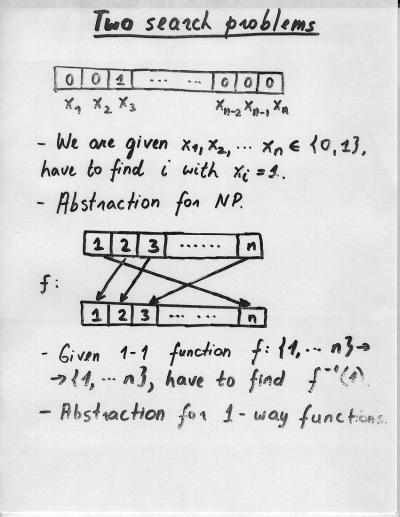 Two search problems
0 0 1 ... ... 0 0 0
x₁ x₂ x₃ xₙ₋₂ xₙ₋₁ xₙ
- We are given x₁, x₂, ... xₙ ∈ {0, 1},
have to find i with xᵢ = 1.
- Abstraction for NP.
1 2 3 ...... n
f:
1 2 3 ... ... n
- Given 1-1 function f: {1, ... n} →
→ {1, ... n}, have to find f⁻¹(1).
- Abstraction for 1-way functions.